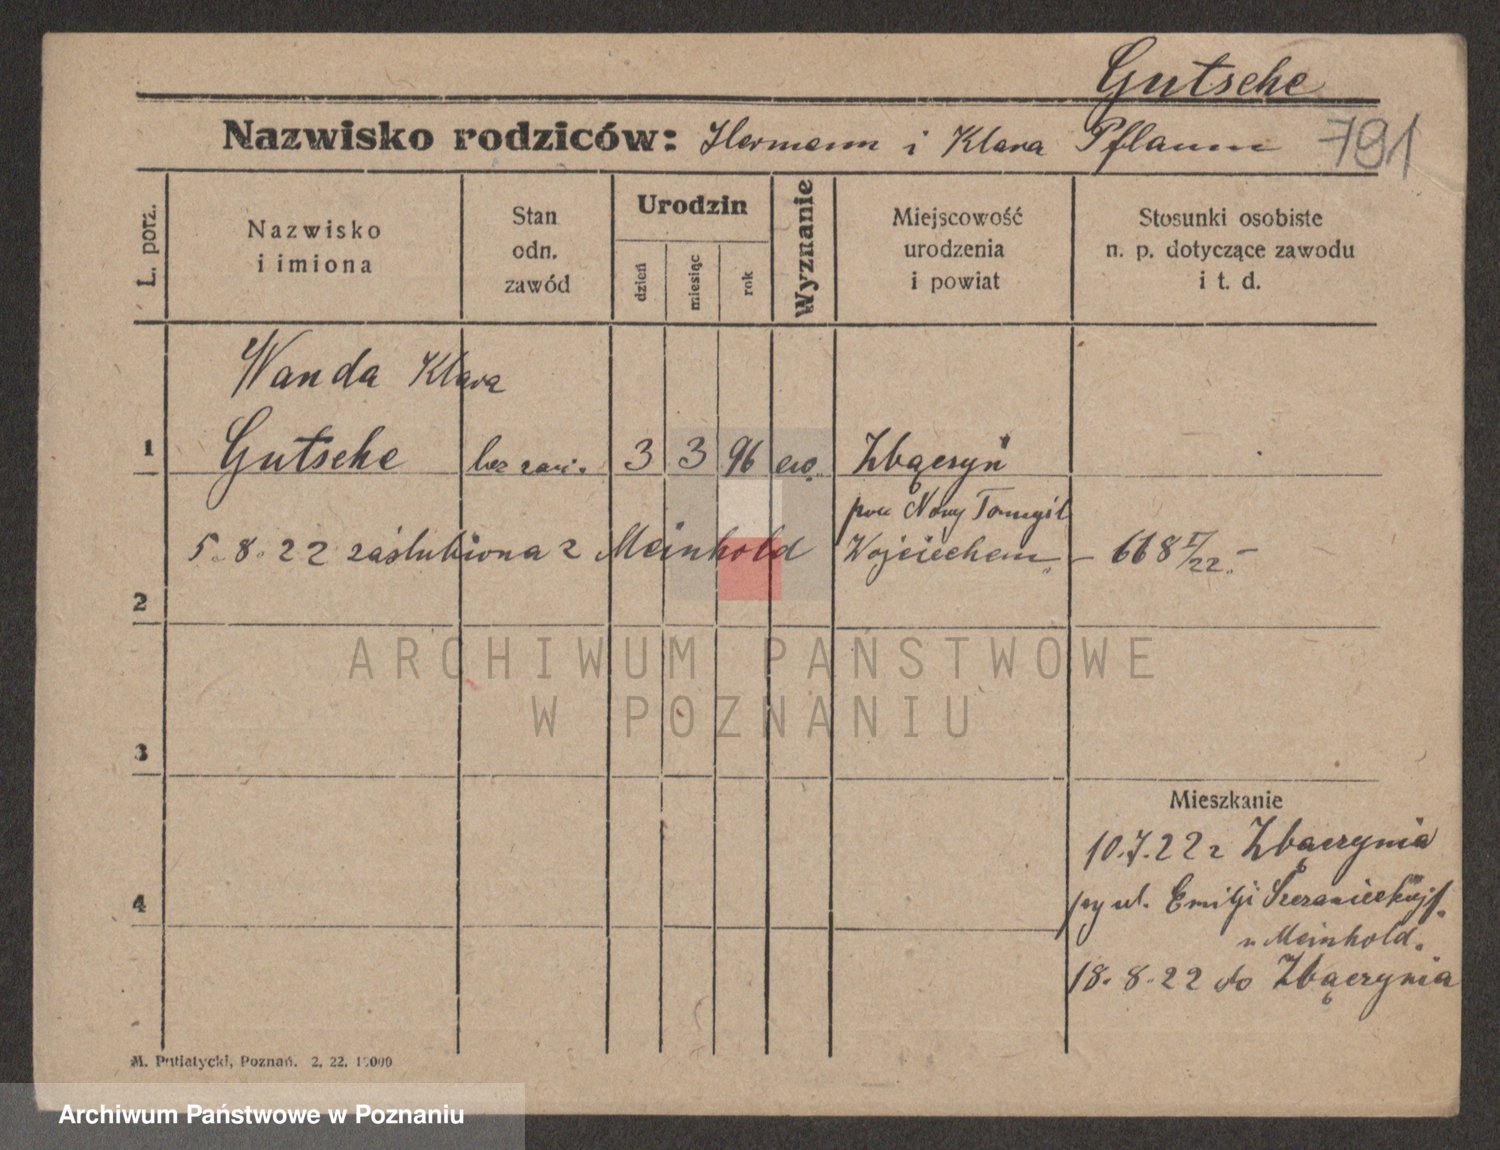 Gutsche
Nazwisko rodziców: Hermann i Klara Pflaum 791
L. porz.
Nazwisko i imiona
Stan odn. zawód
Urodzin
dzień
miesiąc
rok
Wyznanie
Miejscowość urodzenia i powiat
Stosunki osobiste n. p. dotyczące zawodu i t. d.
Wanda Klara
1 Gutsche bez zaw. 3 3 96 ew. Zbąszyń
pow Nowy Tomyśl
5. 8. 22 zaślubiona z Meinhold Wojciechem - 668 /22. -
2
ARCHIWUM PAŃSTWOWE
W POZNANIU
3
Mieszkanie
10.7.22 z Zbąszynia
4 przy ul. Emilji Sczanieckiej
u Meinhold.
18. 8. 22 do Zbąszynia
M. Putiatycki, Poznań. 2. 22.
Archiwum Państwowe w Poznaniu